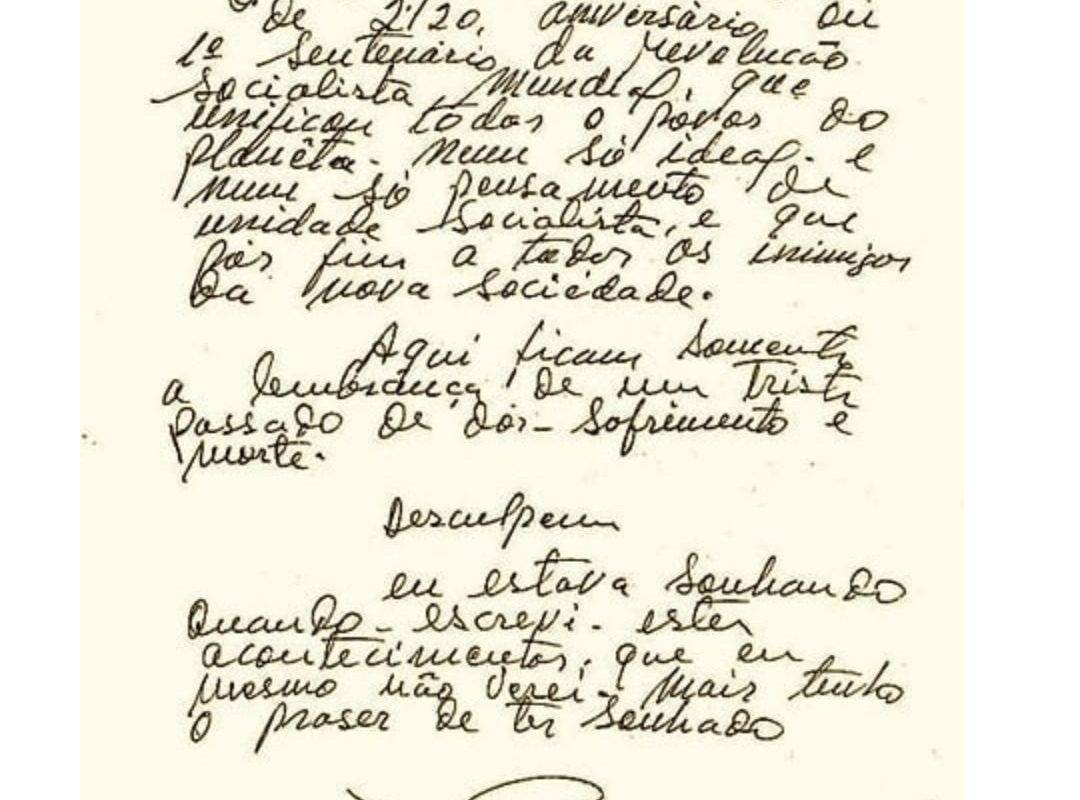 de 2.120, aniversário ou
1º sentenário da revolução
socialista mundial, que
unificou todos o póvos do
planêta. num só ideal. e
num só pensamento de
unidade socialista, e que
pôs fim a todos os inimigos
da nova sociedade.
Aqui ficam somente
a lembrança de um triste
passado de dôr- sofrimento e
morte.
Desculpem
eu estava sonhando
quando - escrevi - estes
acontecimentos, que eu
mesmo não verei. mais tenho
o praser de ter sonhado